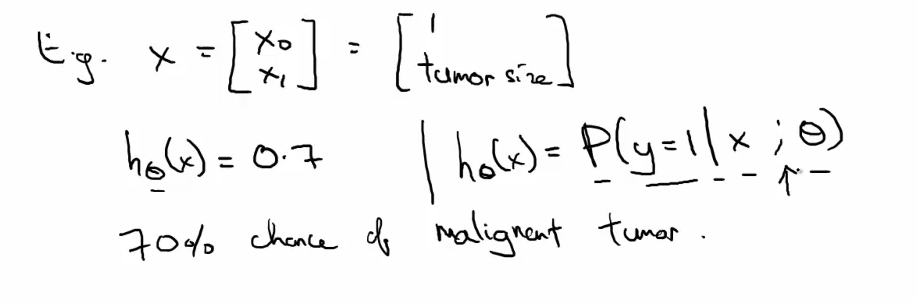 E.g. x = [x₀ x₁] = [1 tumor size]
h_θ(x) = 0.7 | h_θ(x) = P(y=1|x;θ)
70% chance of malignant tumor.